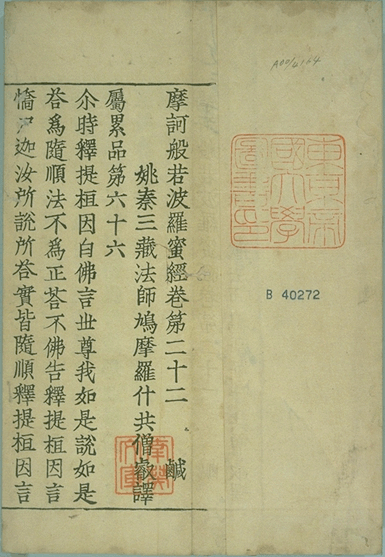 A00/4144
B 40272
摩訶般若波羅蜜經卷第二十二 鹹
姚秦三藏法師鳩摩羅什共僧叡譯
屬累品第六十六
尒時釋提桓因白佛言世尊我如是說如是
荅爲隨順法不爲正荅不佛告釋提桓因言
憍尸迦汝所說所荅實皆隨順釋提桓因言